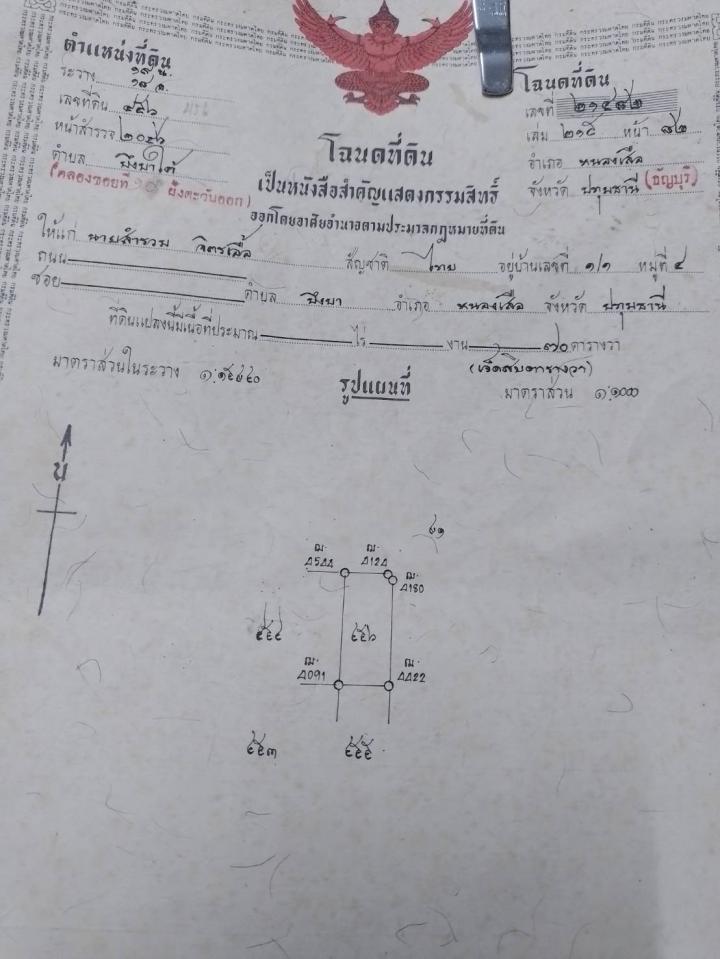 ตำแหน่งที่ดิน
ระวาง
เลขที่ดิน ๕๕๖
หน้าสำรวจ ๒๐๕๖
ตำบล บึงบาใต้
(คลองซอยที่ ๑๐ ฝั่งตะวันออก)
โฉนดที่ดิน
เลขที่ ๒๑๔๘๒
เล่ม ๒๑๕ หน้า ๘๒
อำเภอ หนองเสือ
จังหวัด ปทุมธานี (ธัญบุรี)
โฉนดที่ดิน
เป็นหนังสือสำคัญแสดงกรรมสิทธิ์
ออกโดยอาศัยอำนาจตามประมวลกฎหมายที่ดิน
ให้แก่ นายสำรวม สัญชาติ ไทย อยู่บ้านเลขที่ ๑/๑ หมู่ที่ ๔
ถนน
ซอย ตำบล บึงบา อำเภอ หนองเสือ จังหวัด ปทุมธานี
ที่ดินแปลงนี้มีเนื้อที่ประมาณ ไร่ งาน ๗๐ ตารางวา
(เจ็ดสิบตารางวา)
มาตราส่วนในระวาง
รูปแผนที่
มาตราส่วน ๑:๑๐๐๐
น
๖๑
ฌ. ฌ.
ฌ.
๕๕๔ ๕๕๖
ฌ. ฌ.
๕๕๓ ๕๕๕